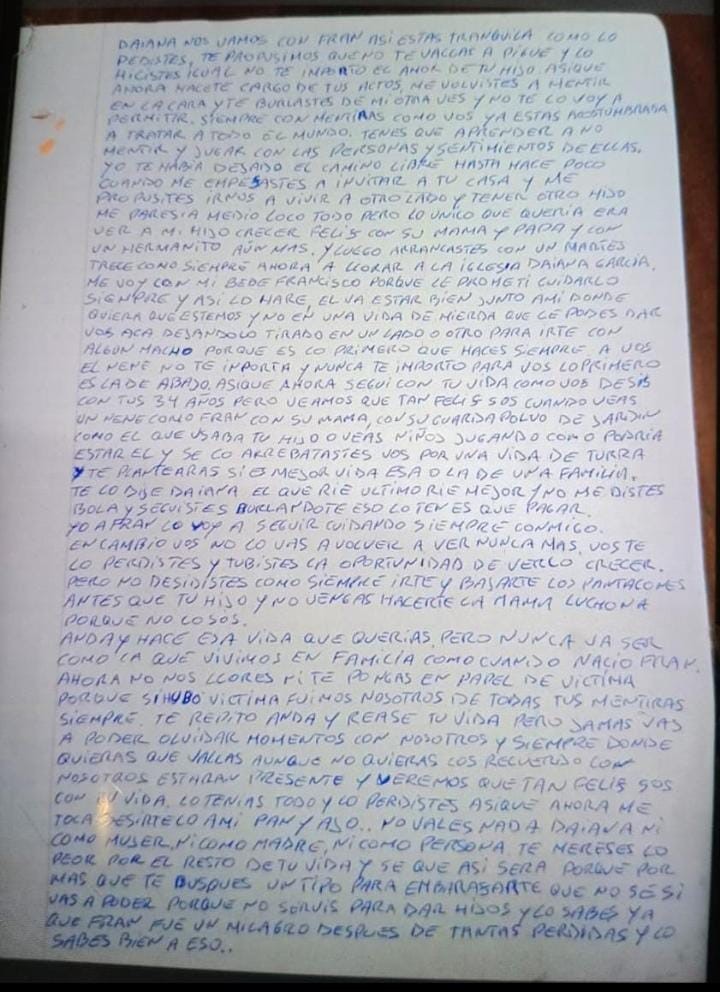 DAIANA NOS VAMOS CON FRAN ASI ESTAS TRANQUILA COMO LO
PEDISTES, TE PROPUSIMOS QUE NO TE VALLAS A PIGUE Y LO
HICISTES IGUAL NO TE IMPORTO EL AMOR DE TU HIJO. ASIQUE
AHORA HACETE CARGO DE TUS ACTOS, ME VOLVISTES A MENTIR
EN LA CARA Y TE BURLASTES DE MI OTRA VES Y NO TE LO VOY A
PERMITIR. SIEMPRE CON MENTIRAS COMO VOS YA ESTAS ACOSTUMBRADA
A TRATAR A TODO EL MUNDO. TENES QUE APRENDER A NO
MENTIR Y JUGAR CON LAS PERSONAS Y SENTIMIENTOS DE ELLAS.
YO TE HABIA DEJADO EL CAMINO LIBRE HASTA HACE POCO
CUANDO ME EMPESASTES A INVITAR A TU CASA Y ME
PROPUSITES IRNOS A VIVIR A OTRO LADO Y TENER OTRO HIJO
ME PARESIA MEDIO LOCO TODO PERO LO UNICO QUE QUERIA ERA
VER A MI HIJO CRECER FELIS CON SU MAMA Y PAPA Y CON
UN HERMANITO AÚN MAS. Y LUEGO ARRANCASTES CON UN MARTES
TRECE COMO SIEMPRE AHORA A LLORAR A LA IGLESIA DAIANA GARCIA.
ME VOY CON MI BEBE FRANCISCO PORQUE LE PROMETI CUIDARLO
SIEMPRE Y ASI LO HARE, EL VA ESTAR BIEN JUNTO AMI DONDE
QUIERA QUE ESTEMOS Y NO EN UNA VIDA DE MIERDA QUE LE PODES DAR
VOS ACA DEJANDOLO TIRADO EN UN LADO O OTRO PARA IRTE CON
ALGUN MACHO PORQUE ES LO PRIMERO QUE HACES SIEMPRE. A VOS
EL NENE NO TE IMPORTA Y NUNCA TE IMPORTO PARA VOS LO PRIMERO
ES LA DE ABAJO. ASIQUE AHORA SEGUI CON TU VIDA COMO VOS DESIS
CON TUS 34 AÑOS PERO VEAMOS QUE TAN FELIS SOS CUANDO VEAS
UN NENE COMO FRAN CON SU MAMA, CON SU GUARDAPOLVO DE JARDIN
COMO EL QUE USABA TU HIJO O VEAS NIÑOS JUGANDO COMO PODRIA
ESTAR EL Y SE LO ARREBATASTES VOS POR UNA VIDA DE TURRA
Y TE PLANTEARAS SI ES MEJOR VIDA ESA O LA DE UNA FAMILIA.
TE LO DIJE DAIANA EL QUE RIE ULTIMO RIE MEJOR Y NO ME DISTES
BOLA Y SEGUISTES BURLANDOTE ESO LO TENES QUE PAGAR.
YO A FRAN LO VOY A SEGUIR CUIDANDO SIEMPRE CONMIGO.
EN CAMBIO VOS NO LO VAS A VOLVER A VER NUNCA MAS, VOS TE
LO PERDISTES Y TUBISTES LA OPORTUNIDAD DE VERLO CRECER.
PERO NO DESIDISTES COMO SIEMPRE IRTE Y BAJARTE LOS PANTALONES
ANTES QUE TU HIJO Y NO VENGAS HACERTE LA MAMA LUCHONA
PORQUE NO LO SOS.
ANDA Y HACE ESA VIDA QUE QUERIAS, PERO NUNCA VA SER
COMO LA QUE VIVIMOS EN FAMILIA COMO CUANDO NACIO FRAN.
AHORA NO NOS LLORES NI TE PONGAS EN PAPEL DE VICTIMA
PORQUE SI HUBO VICTIMA FUIMOS NOSOTROS DE TODAS TUS MENTIRAS
SIEMPRE. TE REPITO ANDA Y REASE TU VIDA PERO JAMAS VAS
A PODER OLVIDAR MOMENTOS CON NOSOTROS Y SIEMPRE DONDE
QUIERAS QUE VALLAS AUNQUE NO QUIERAS LOS RECUERDO CON
NOSOTROS ESTARAN PRESENTE Y VEREMOS QUE TAN FELIS SOS
CON TU VIDA. LO TENIAS TODO Y LO PERDISTES ASIQUE AHORA ME
TOCA DESIRTELO AMI PAN Y AJO.. NO VALES NADA DAIANA NI
COMO MUJER, NI COMO MADRE, NI COMO PERSONA. TE MERESES LO
PEOR POR EL RESTO DE TU VIDA Y SE QUE ASI SERA PORQUE POR
MAS QUE TE BUSQUES UN TIPO PARA EMBARASARTE QUE NO SE SI
VAS A PODER PORQUE NO SERVIS PARA DAR HIJOS Y LO SABES YA
QUE FRAN FUE UN MILAGRO DESPUES DE TANTAS PERDIDAS Y LO
SABES BIEN A ESO..